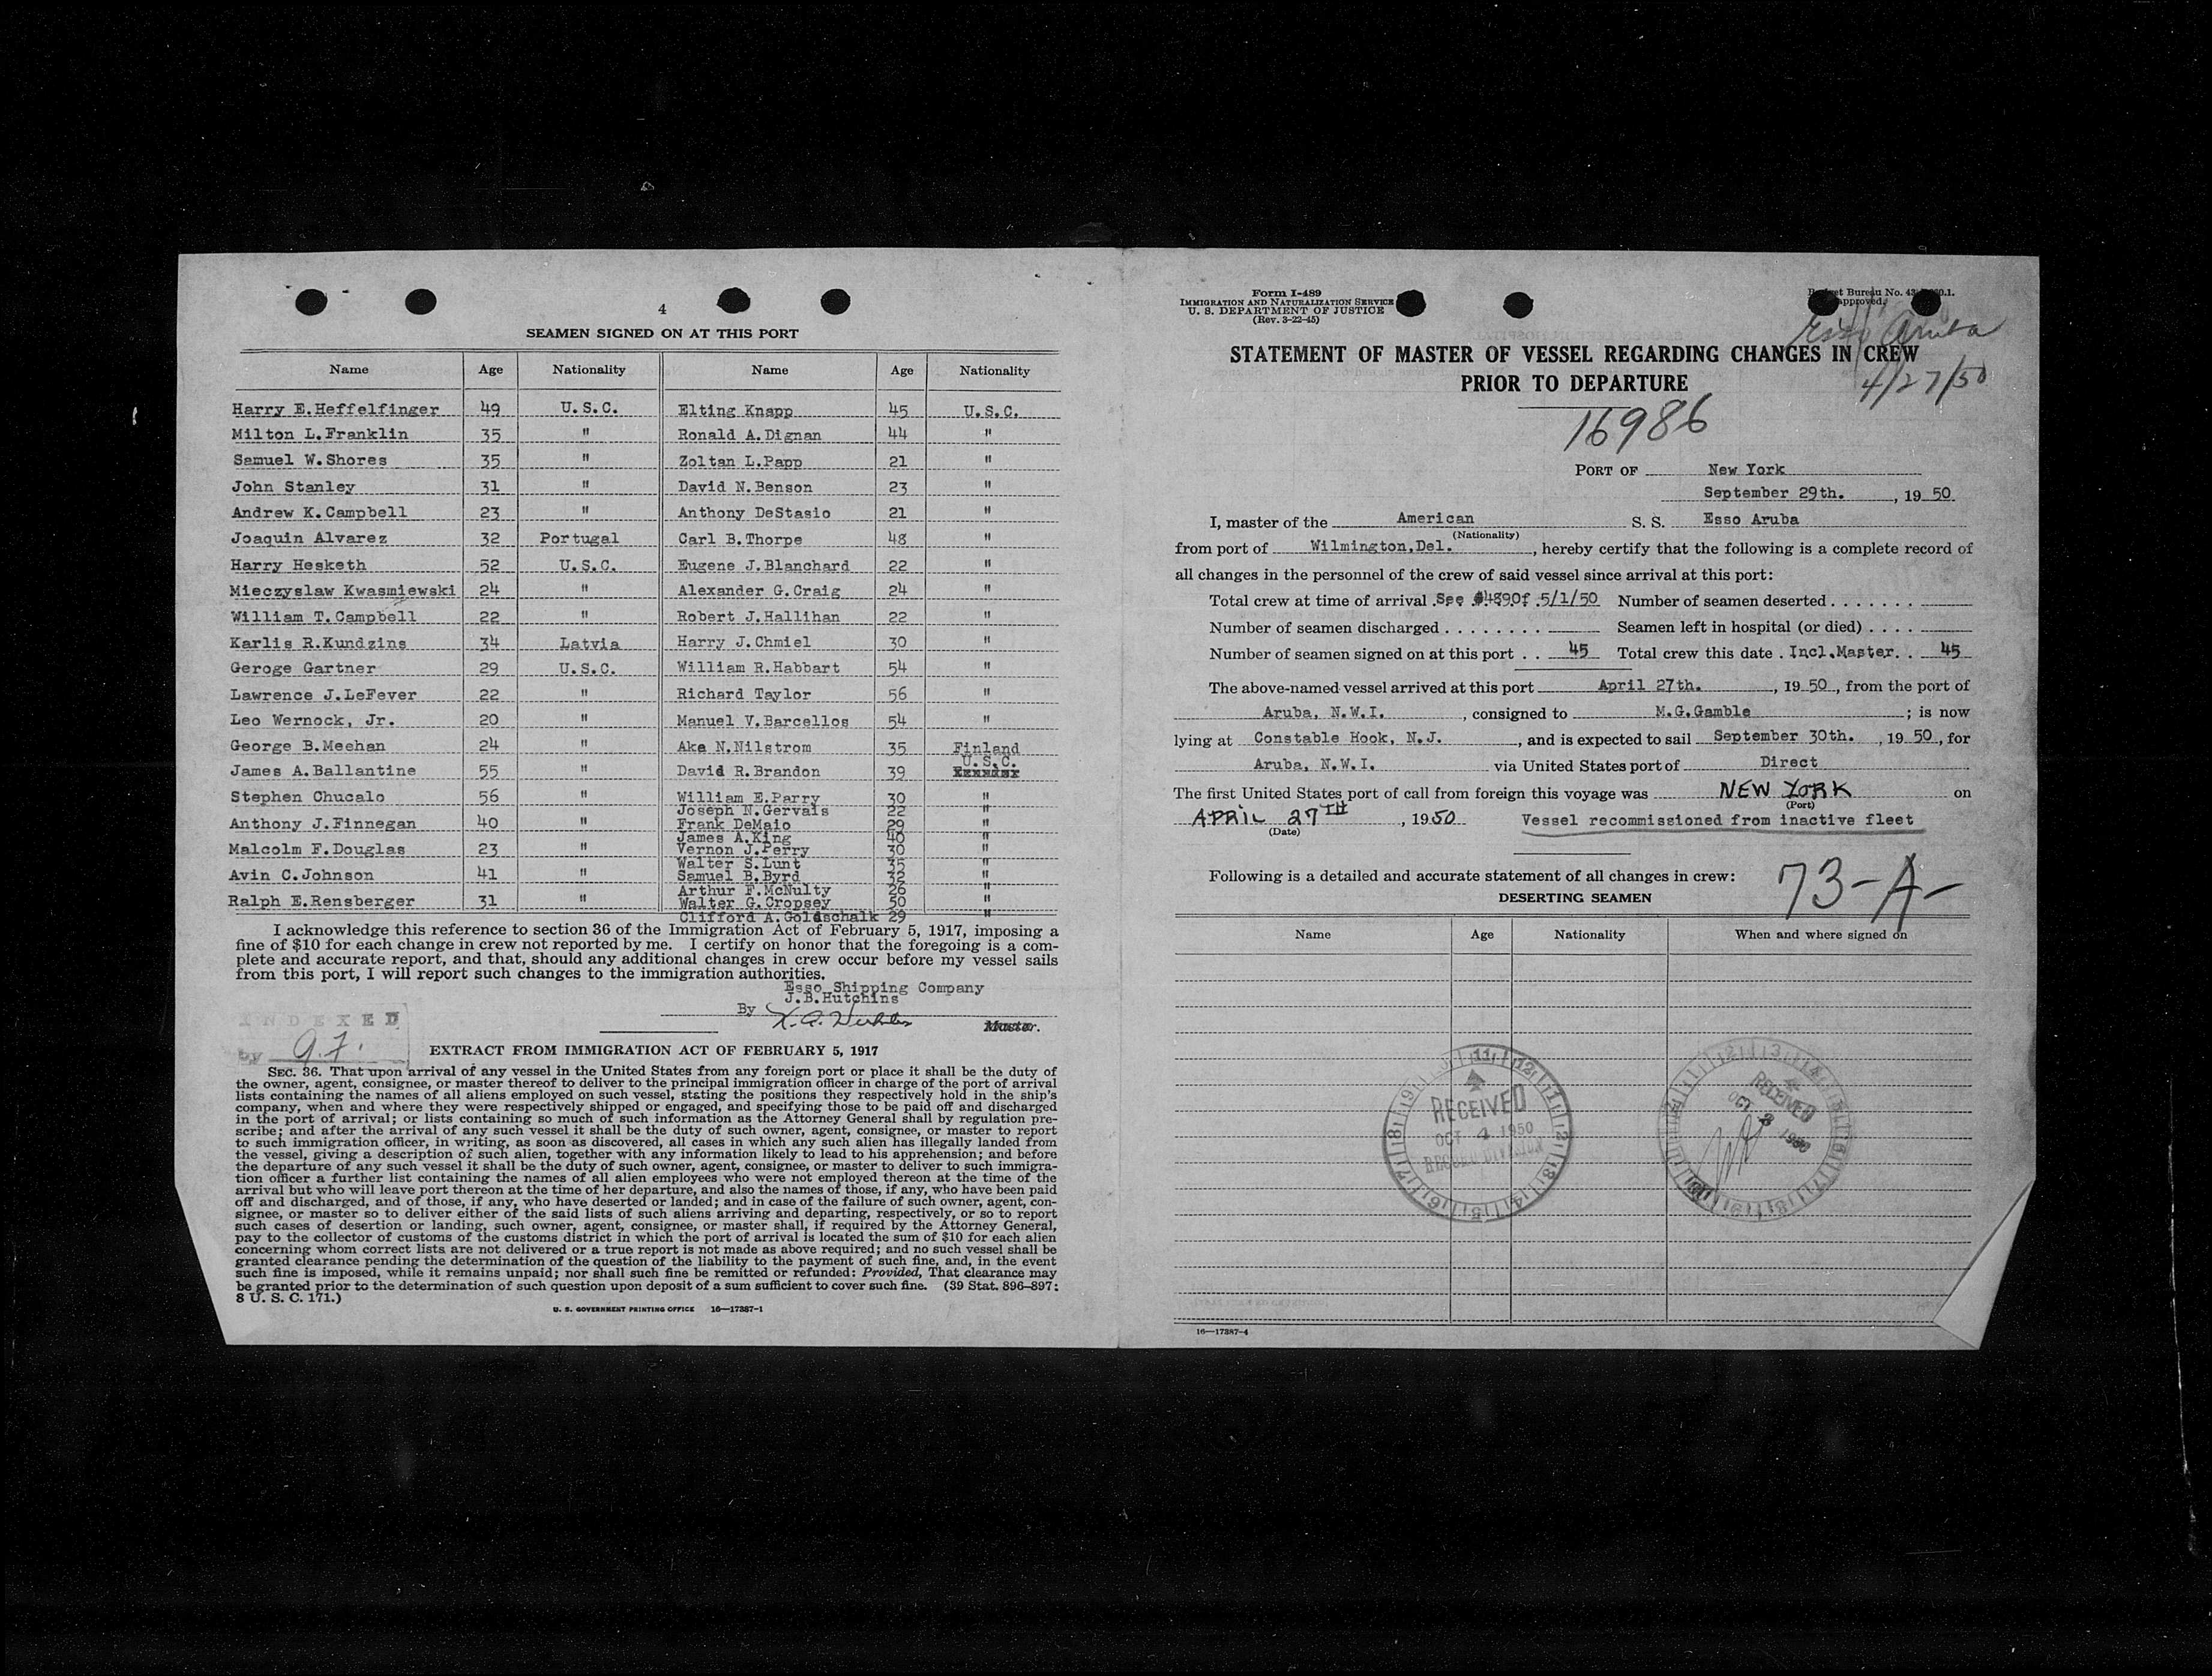 4
SEAMEN SIGNED ON AT THIS PORT
Name Age Nationality Name Age Nationality
Harry E.Heffelfinger 49 U.S.C. Elting Knapp 45 U.S.C.
Milton L.Franklin 35 " Ronald A.Dignan 44 "
Samuel W.Shores 35 " Zoltan L.Papp 21 "
John Stanley 31 " David N.Benson 23 "
Andrew K.Campbell 23 " Anthony DeStasio 21 "
Joaquin Alvarez 32 Portugal Carl B.Thorpe 48 "
Harry Hesketh 52 U.S.C. Eugene J.Blanchard 22 "
Mieczyslaw Kwasmiewski 24 " Alexander G.Craig 24 "
William T.Campbell 22 " Robert J.Hallihan 22 "
Karlis R.Kundzins 34 Latvia Harry J.Chmiel 30 "
Geroge Gartner 29 U.S.C. William R.Habbart 54 "
Lawrence J.LeFever 22 " Richard Taylor 56 "
Leo Wernock, Jr. 20 " Manuel V.Barcellos 54 "
George B.Meehan 24 " Ake N.Nilstrom 35 Finland
James A.Ballantine 55 " David R.Brandon 39 U.S.C.
Stephen Chucalo 56 " William E.Parry 30 "
Joseph N.Gervais 22 "
Anthony J.Finnegan 40 " Frank DeMaio 29 "
James A.King 40 "
Malcolm F.Douglas 23 " Vernon J.Perry 30 "
Walter S.Lunt 35 "
Avin C.Johnson 41 " Samuel B.Byrd 32 "
Arthur F.McNulty 26 "
Ralph E.Rensberger 31 " Walter G.Cropsey 50 "
Clifford A.Goldschalk 29 "
I acknowledge this reference to section 36 of the Immigration Act of February 5, 1917, imposing a
fine of $10 for each change in crew not reported by me. I certify on honor that the foregoing is a com-
plete and accurate report, and that, should any additional changes in crew occur before my vessel sails
from this port, I will report such changes to the immigration authorities.
Esso Shipping Company
J.B.Hutchins
By
Master.
INDEXED
by
EXTRACT FROM IMMIGRATION ACT OF FEBRUARY 5, 1917
SEC. 36. That upon arrival of any vessel in the United States from any foreign port or place it shall be the duty of
the owner, agent, consignee, or master thereof to deliver to the principal immigration officer in charge of the port of arrival
lists containing the names of all aliens employed on such vessel, stating the positions they respectively hold in the ship's
company, when and where they were respectively shipped or engaged, and specifying those to be paid off and discharged
in the port of arrival; or lists containing so much of such information as the Attorney General shall by regulation pre-
scribe; and after the arrival of any such vessel it shall be the duty of such owner, agent, consignee, or master to report
to such immigration officer, in writing, as soon as discovered, all cases in which any such alien has illegally landed from
the vessel, giving a description of such alien, together with any information likely to lead to his apprehension; and before
the departure of any such vessel it shall be the duty of such owner, agent, consignee, or master to deliver to such immigra-
tion officer a further list containing the names of all alien employees who were not employed thereon at the time of the
arrival but who will leave port thereon at the time of her departure, and also the names of those, if any, who have been paid
off and discharged, and of those, if any, who have deserted or landed; and in case of the failure of such owner, agent, con-
signee, or master so to deliver either of the said lists of such aliens arriving and departing, respectively, or so to report
such cases of desertion or landing, such owner, agent, consignee, or master shall, if required by the Attorney General,
pay to the collector of customs of the customs district in which the port of arrival is located the sum of $10 for each alien
concerning whom correct lists are not delivered or a true report is not made as above required; and no such vessel shall be
granted clearance pending the determination of the question of the liability to the payment of such fine, and, in the event
such fine is imposed, while it remains unpaid; nor shall such fine be remitted or refunded: Provided, That clearance may
be granted prior to the determination of such question upon deposit of a sum sufficient to cover such fine. (39 Stat. 896–897;
8 U. S. C. 171.)
U. S. GOVERNMENT PRINTING OFFICE 16—17387-1
Form I-489
IMMIGRATION AND NATURALIZATION SERVICE
U. S. DEPARTMENT OF JUSTICE
(Rev. 3-22-45)
Bureau No.
approved.
Esso Aruba
4/27/50
STATEMENT OF MASTER OF VESSEL REGARDING CHANGES IN CREW
PRIOR TO DEPARTURE
16986
PORT OF New York
September 29th., 1950
I, master of the American S. S. Esso Aruba
(Nationality)
from port of Wilmington,Del., hereby certify that the following is a complete record of
all changes in the personnel of the crew of said vessel since arrival at this port:
Total crew at time of arrival See #489of 5/1/50 Number of seamen deserted
Number of seamen discharged Seamen left in hospital (or died)
Number of seamen signed on at this port 45 Total crew this date Incl.Master. 45
The above-named vessel arrived at this port April 27th., 1950, from the port of
Aruba, N.W.I., consigned to M.G.Gamble; is now
lying at Constable Hook, N.J., and is expected to sail September 30th., 1950, for
Aruba, N.W.I. via United States port of Direct
The first United States port of call from foreign this voyage was NEW YORK on
(Port)
APRIL 27TH, 1950 Vessel recommissioned from inactive fleet
(Date)
Following is a detailed and accurate statement of all changes in crew:
73-A-
DESERTING SEAMEN
Name Age Nationality When and where signed on
RECEIVED
OCT 4 1950
RECORD DIVISION
RECEIVED
OCT 3 1950
16—17387-4